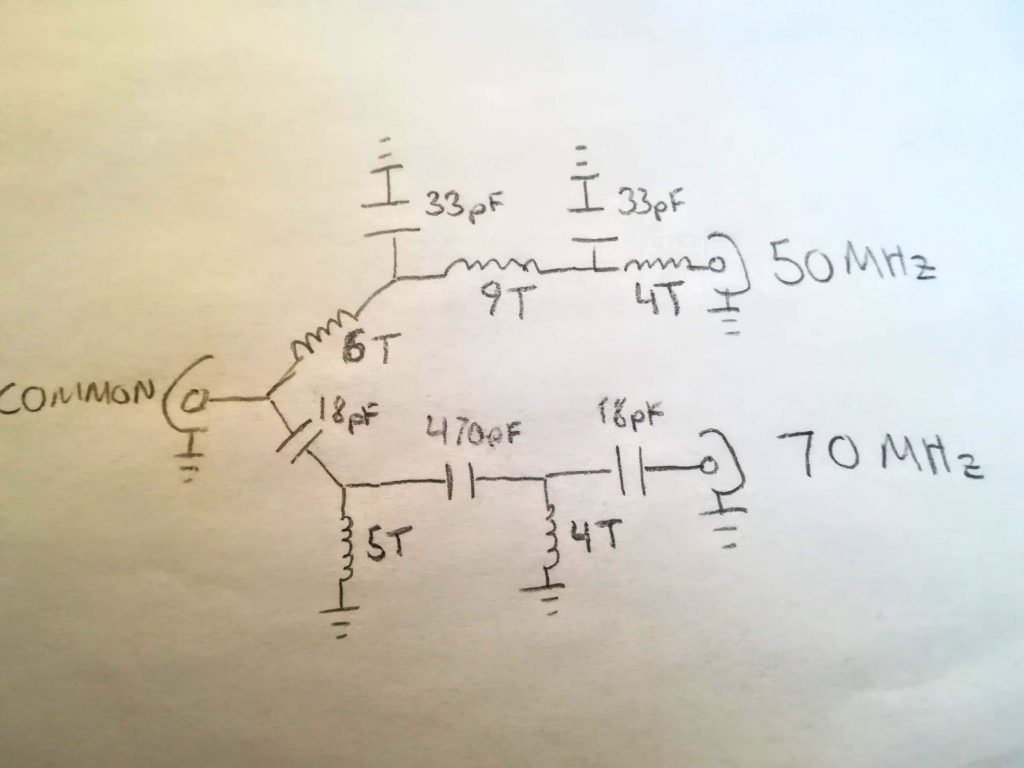 33pF
33pF
50 MHz
9T
4T
6T
COMMON
18pF
470pF
18pF
70 MHz
5T
4T